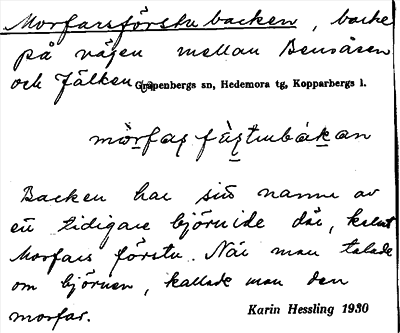 Morfarsförstubacken, backe
på vägen mellan Bensåsen
och Jälken Garpenbergs sn, Hedemora tg, Kopparbergs l.
Backen har sitt namn av
ett tidigare björnide där, kallat
Morfars förstu. När man talade
om björnen, kallade man den
morfar.
Karin Hessling 1930